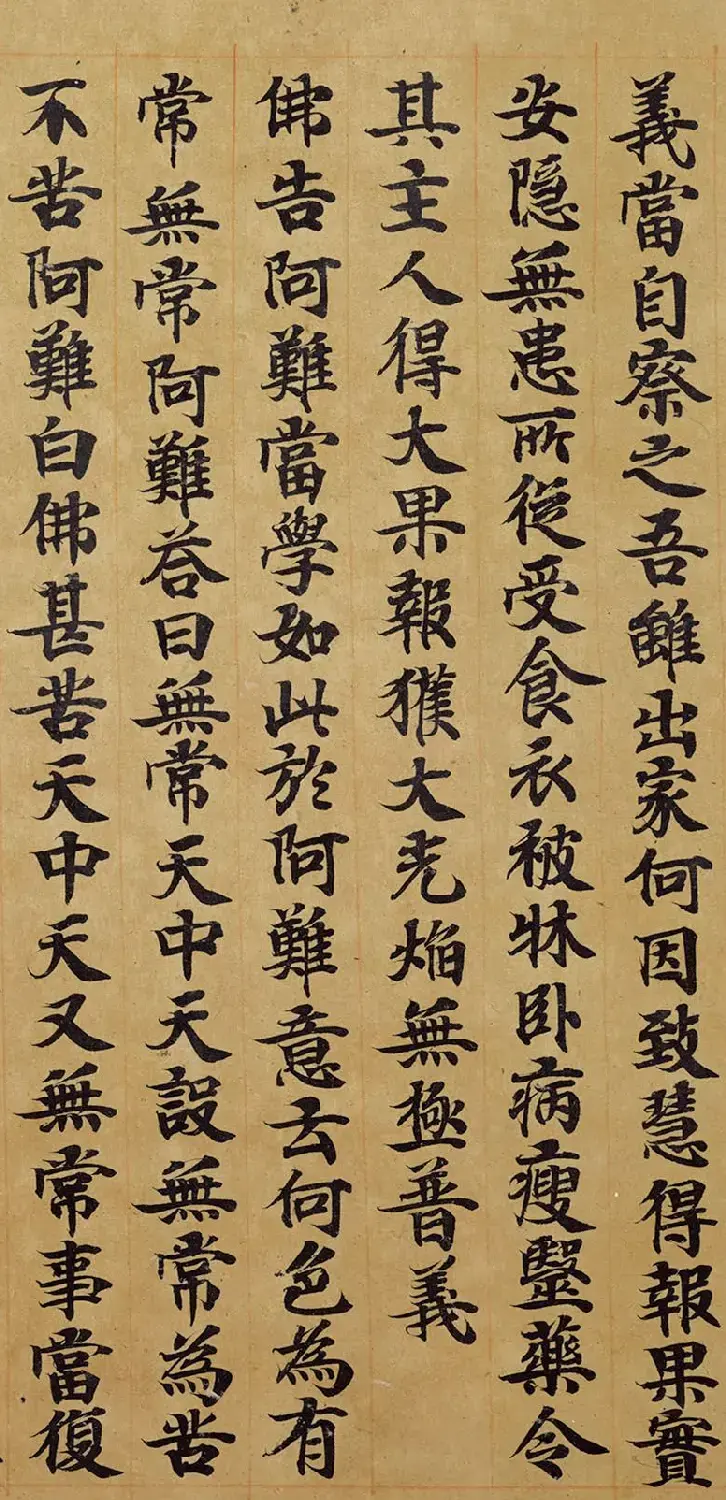 義當自察之吾雖出家何因致慧得報果實
安隱無患所從受食衣被牀臥病瘦毉藥令
其主人得大果報獲大光焰無極普義
佛告阿難當學如此於阿難意云何色為有
常無常阿難荅曰無常天中天設無常為苦
不苦阿難白佛甚苦天中天又無常事當復